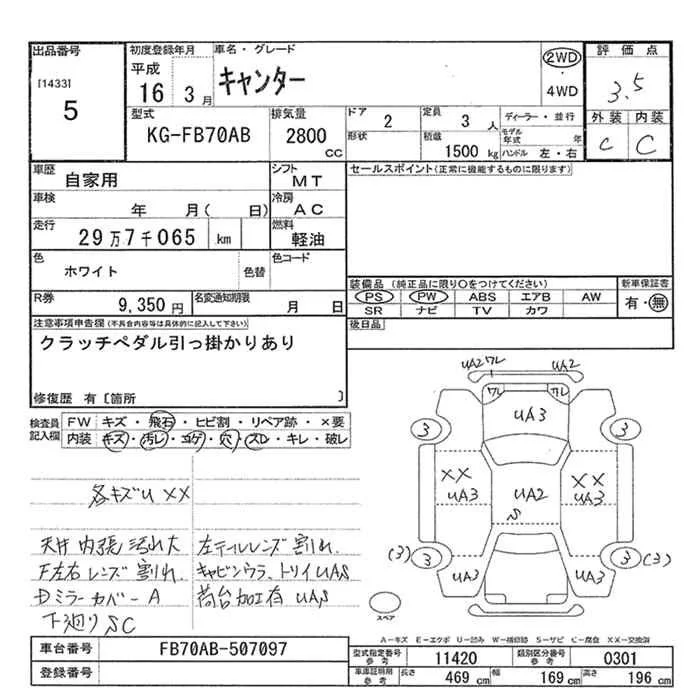 出品番号
[1433]
5
初度登録年月
平成
16 3月
車名・グレード
キャンター
2WD
・
4WD
評価点
3.5
外装 内装
C C
型式
KG-FB70AB
排気量
2800
CC
ドア
2
形状
定員
3 人
積載
1500 kg
ディーラー・並行
モデル年式 年
ハンドル 左・右
車歴
自家用
シフト
MT
車検
年 月( 日)
冷房
AC
走行
29万7千065 km
燃料
軽油
色
ホワイト
色替
色コード
R券
9,350円
名変通知期限
月 日
セールスポイント(正常に機能するものに限ります)
装備品 (純正品に限り○をつけてください)
PS PW ABS エアB AW
SR ナビ TV カワ
新車保証書
有・無
後日品
注意事項申告欄(不具合内容等は具体的に記入して下さい)
クラッチペダル引っ掛かりあり
修復歴 有〔箇所 〕
検査員記入欄
FW キズ・飛石・ヒビ割・リペア跡・×要
内装 キズ・汚レ・コゲ・穴・スレ・キレ・破レ
各キズU XX
天井内張汚れ大
F左右レンズ割れ
Dミラーカバー A
下廻りSC
左テールレンズ割れ.
キャビンウラ、トリイUAS
荷台加工有 UA,S
UA2 ワレ UA2
ワレ ワレ
UA3
3 3
XX XX
UA3 UA2 UA3
S
(3) 3 3 (3)
UA3 UA3
スペア
A－キズ E－エクボ U－凹み W－補修跡 S－サビ C－腐食 XX－交換済
車台番号
FB70AB-507097
登録番号
型式指定番号
参考
11420
類別区分番号
参考
0301
車庫証明用
参考
長さ 469 cm
幅 169 cm
高さ 196 cm